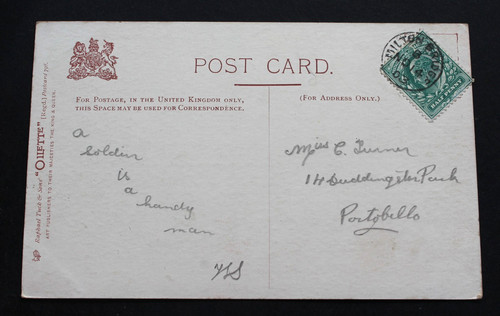 POST CARD.
FOR POSTAGE, IN THE UNITED KINGDOM ONLY,
THIS SPACE MAY BE USED FOR CORRESPONDENCE.
(FOR ADDRESS ONLY.)
Raphael Tuck & Sons' "OILETTE" [Regd.] Postcard
ART PUBLISHERS TO THEIR MAJESTIES THE KING & QUEEN.
MILTON
HALFPENNY
a
soldier
is
a
handy
man
Miss C. Turner
14 Duddingston Park
Portobello